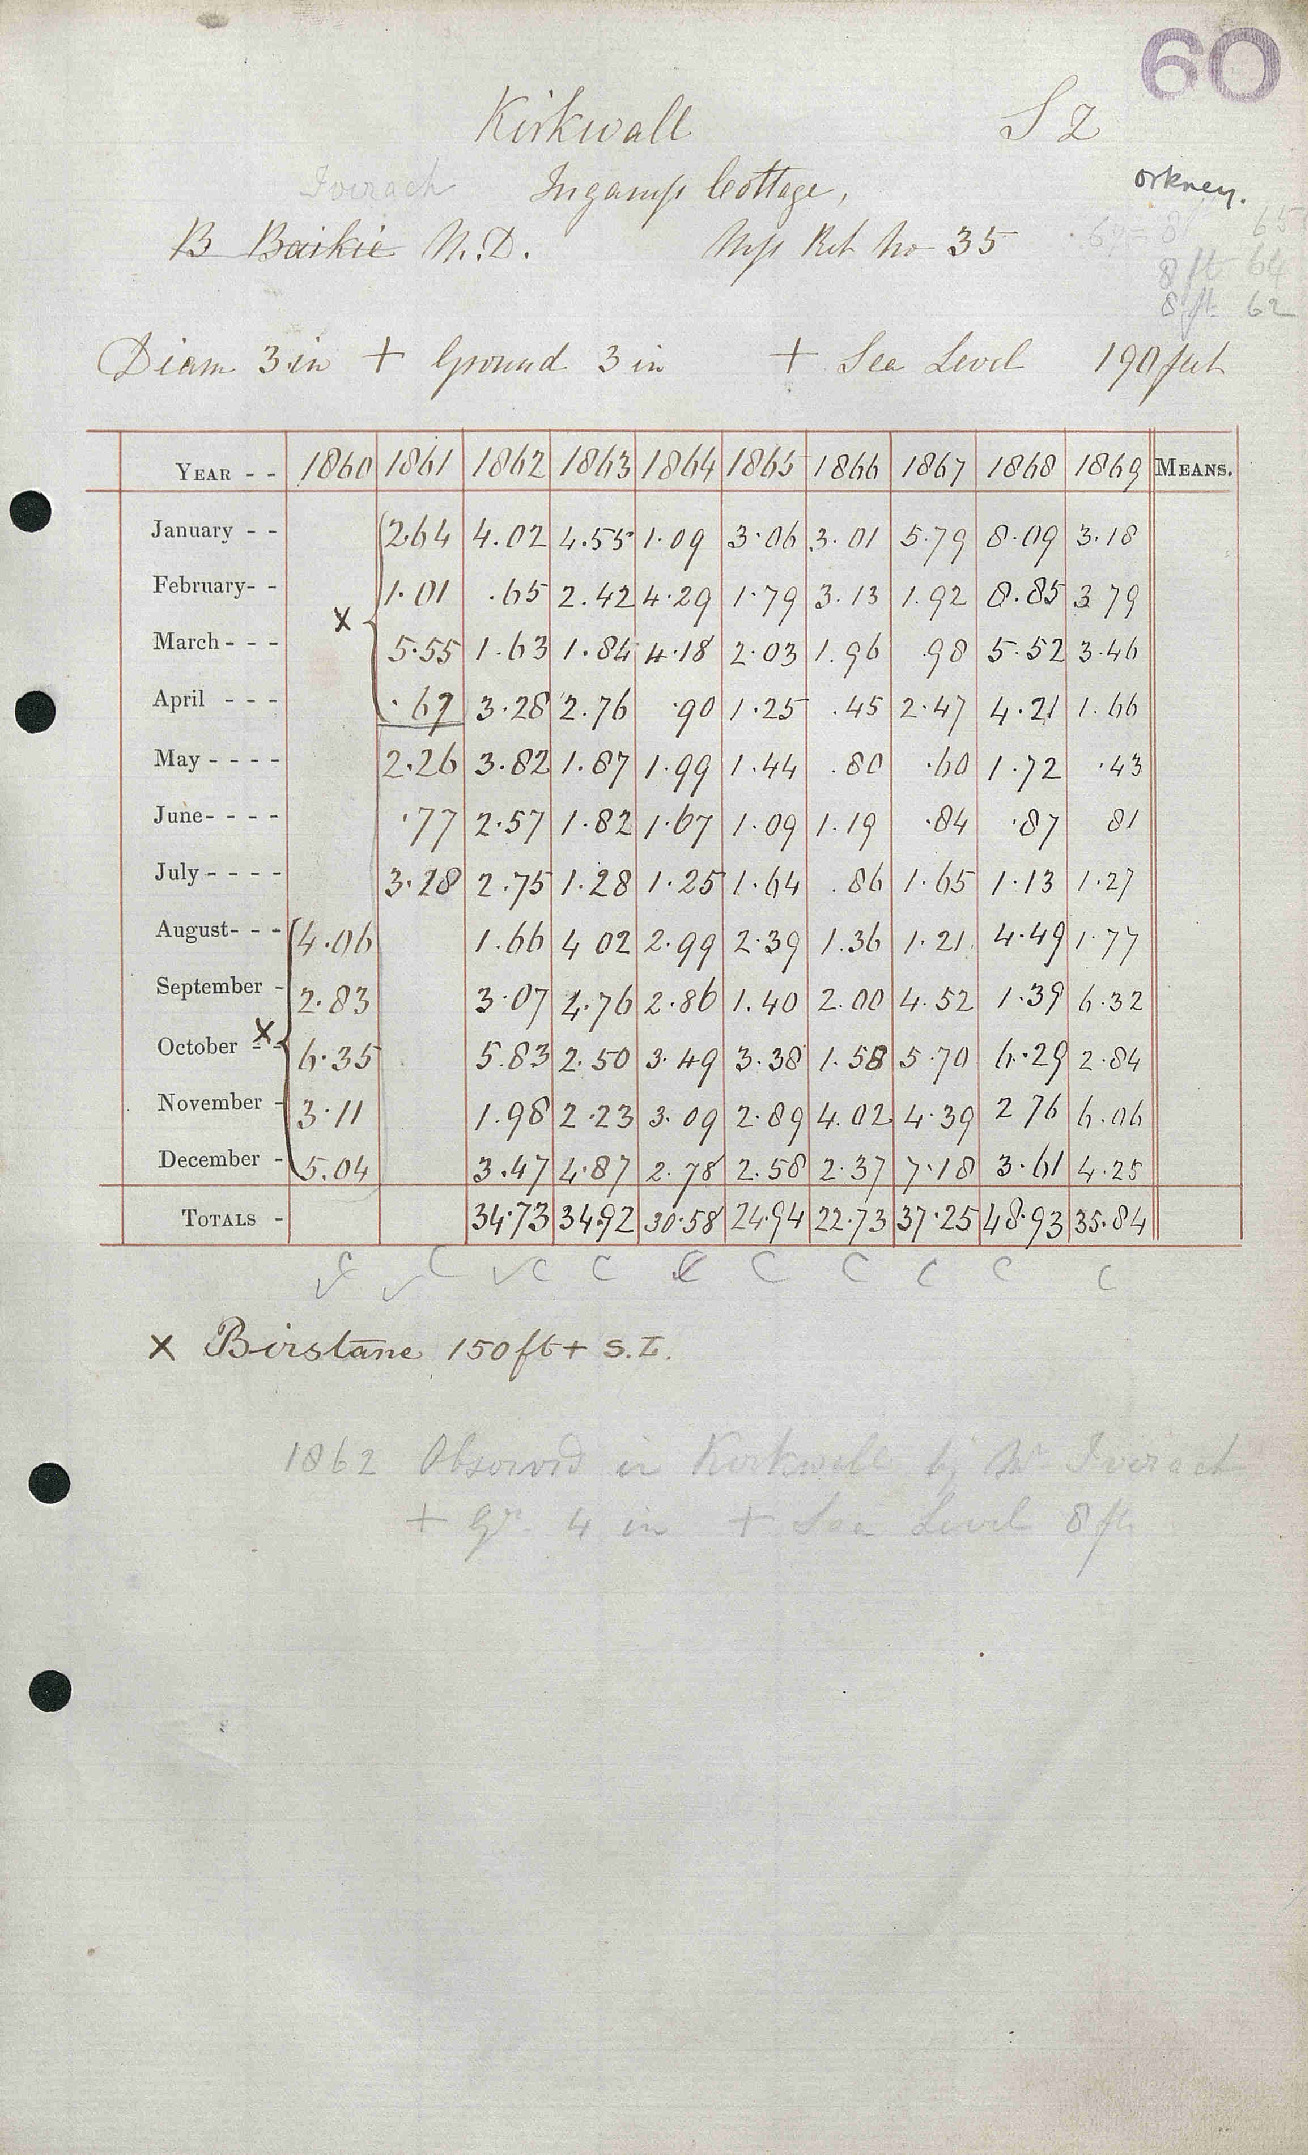 60
Kirkwall S 2
Iverach Ingamss Cottage, Orkney.
B Baikie M.D. Mss Ret No 35 65
8 ft 64
8 ft 62
Diam 3 in + Ground 3 in + Sea Level 190 feet
YEAR - - 1860 1861 1862 1863 1864 1865 1866 1867 1868 1869 MEANS.
January - - 2.64 4.02 4.55 1.09 3.06 3.01 5.79 8.09 3.18
February - - 1.01 .65 2.42 4.29 1.79 3.13 1.92 8.85 3 79
X
March - - - 5.55 1.63 1.84 4.18 2.03 1.96 .98 5.52 3.46
April - - - .67 3.28 2.76 .90 1.25 .45 2.47 4.21 1.66
May - - - - 2.26 3.82 1.87 1.99 1.44 .80 .60 1.72 .43
June - - - - .77 2.57 1.82 1.67 1.09 1.19 .84 .87 81
July - - - - 3.28 2.75 1.28 1.25 1.64 .86 1.65 1.13 1.27
August - - - 4.06 1.66 4 02 2.99 2.39 1.36 1.21 4.49 1.77
September - 2.83 3.07 4.76 2.86 1.40 2.00 4.52 1.39 6.32
October - - X 6.35 5.83 2.50 3.49 3.38 1.58 5.70 6.29 2.84
November - 3.11 1.98 2.23 3.09 2.89 4.02 4.39 2 76 6.06
December - 5.04 3.47 4.87 2.78 2.58 2.37 7.18 3.61 4.25
TOTALS - 34.73 34.92 30.58 24.94 22.73 37.25 48.93 35.84
C C C C C C C C C C
X Birstane 150 ft + S.L.
1862 Observed in Kirkwall by Mr Iverach
+ Gr. 4 in + Sea Level 8 ft